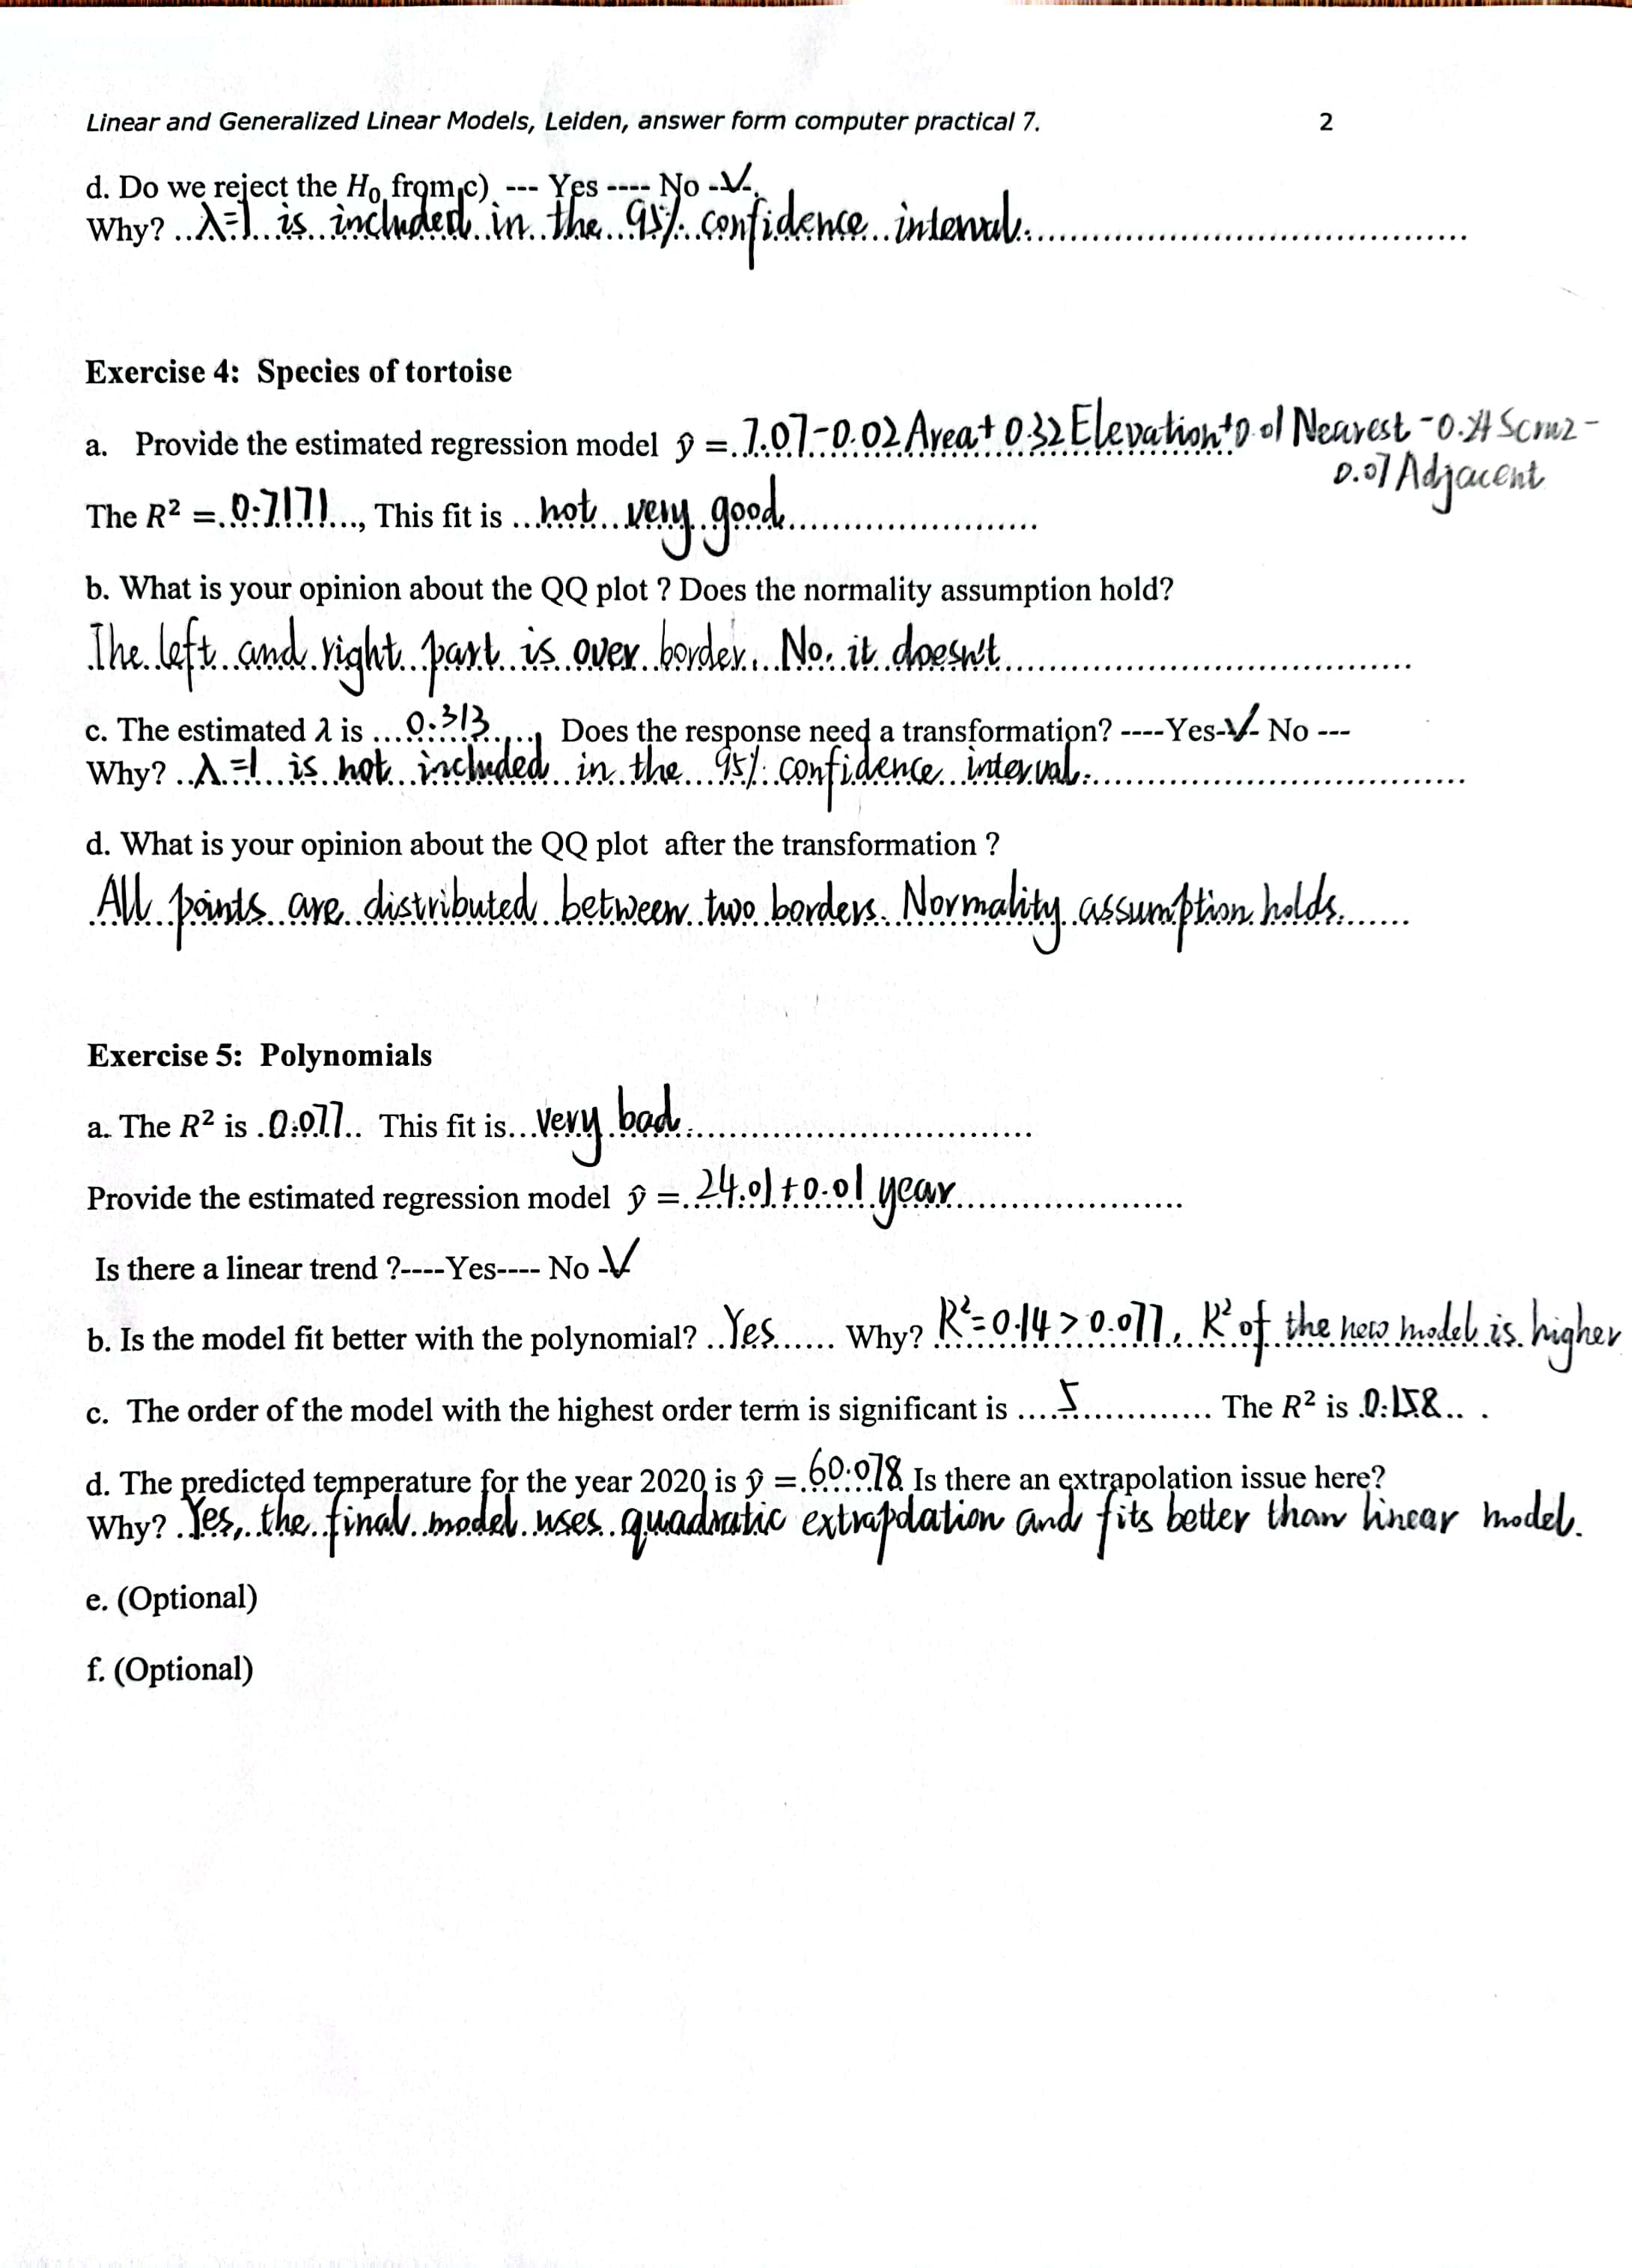 Linear and Generalized Linear Models, Leiden, answer form computer practical 7. 2
d. Do we reject the H₀ from c) --- Yes ---- No -√-.
Why? ..λ=1..is..included..in..the..95%..confidence..interval..........
Exercise 4: Species of tortoise
a. Provide the estimated regression model ŷ = .7.07-0.02 Area+ 0.32 Elevation+0.01 Nearest -0.24 Scruz -
0.07 Adjacent
The R² = .0.7171..., This fit is ...not..very..good..........
b. What is your opinion about the QQ plot ? Does the normality assumption hold?
The left and right part is over border. No, it doesn't..........
c. The estimated λ is ...0.313....., Does the response need a transformation? ----Yes-√- No ---
Why? ..λ=1..is not..included..in the...95% confidence interval..........
d. What is your opinion about the QQ plot after the transformation ?
All points are distributed between two borders. Normality assumption holds.......
Exercise 5: Polynomials
a. The R² is .0.077.. This fit is...very bad..........
Provide the estimated regression model ŷ =. 24.01+0.01 year..........
Is there a linear trend ?----Yes---- No -√
b. Is the model fit better with the polynomial? ..Yes...... Why? R²=0.14 > 0.077, R² of the new model is higher
c. The order of the model with the highest order term is significant is ....5............. The R² is .0.158.. .
d. The predicted temperature for the year 2020 is ŷ =.60.078 Is there an extrapolation issue here?
Why? .Yes, the final model uses quadratic extrapolation and fits better than linear model.
e. (Optional)
f. (Optional)